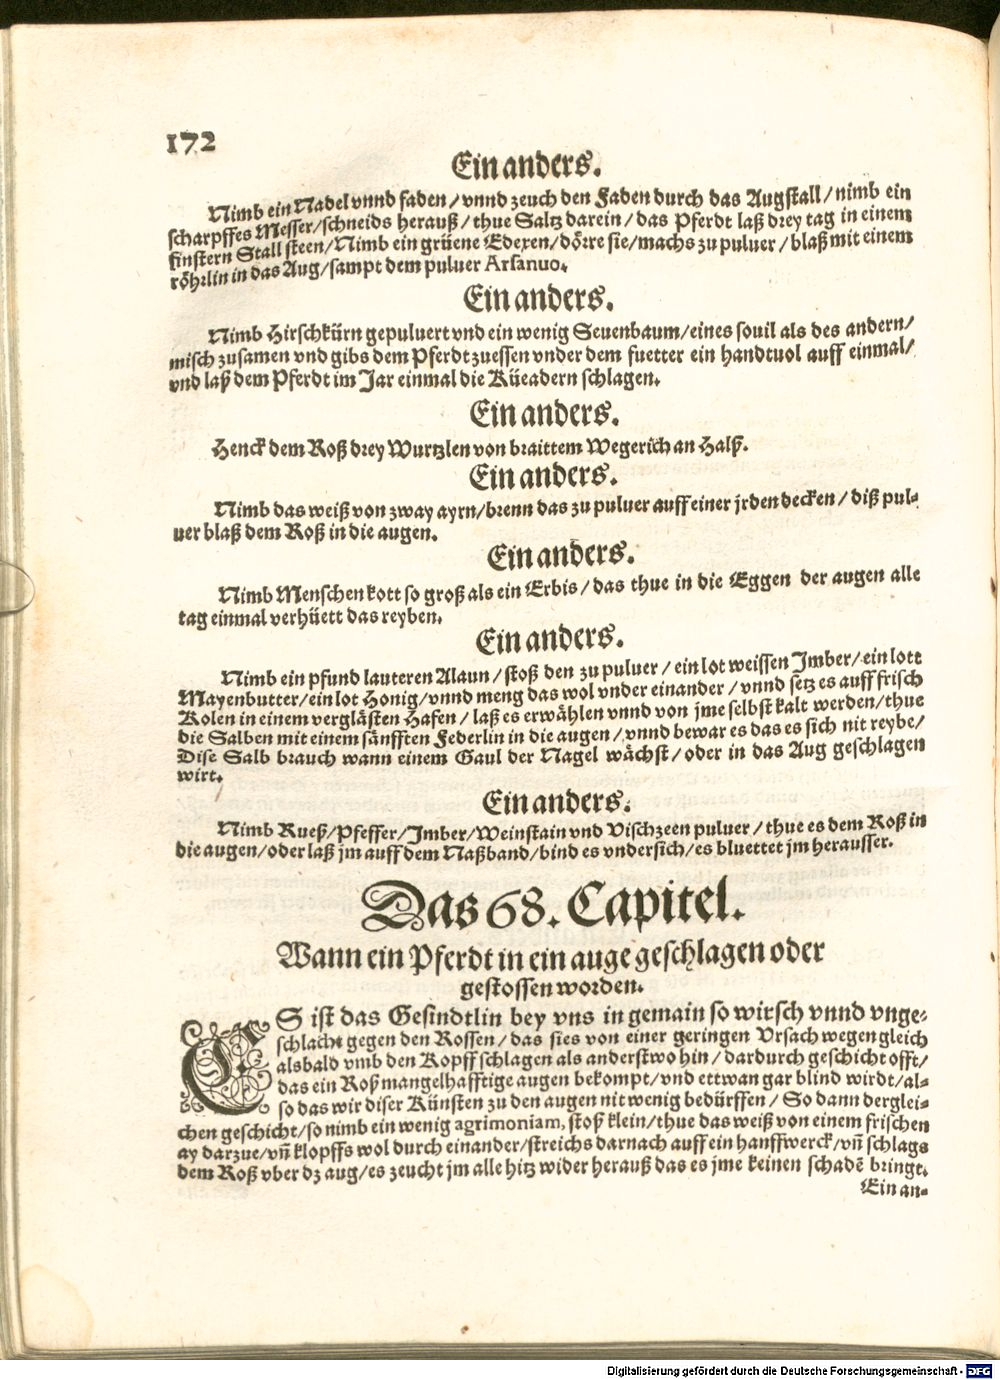 172
Ein anders.
Nimb ein Nadel vnnd faden / vnnd zeuch den Faden durch das Augstall / nimb ein
scharpffes Messer/schneids herauß / thue Saltz darein / das Pferdt laß drey tag in einem
finstern Stall steen/Nimb ein grüene Edexen/dörre sie/machs zu puluer / blaß mit einem
röhrlin in das Aug/sampt dem puluer Arsanuo.
Ein anders.
Nimb Hirschkürn gepuluert vnd ein wenig Seuenbaum/eines souil als des andern/
misch zusamen vnd gibs dem Pferdt zuessen vnder dem fuetter ein handtuol auff einmal/
vnd laß dem Pferdt im Jar einmal die Küeadern schlagen.
Ein anders.
Henck dem Roß drey Wurtzlen von braittem Wegerich an Halß.
Ein anders.
Nimb das weiß von zway ayrn/brenn das zu puluer auff einer jrden decken / diß pul-
uer blaß dem Roß in die augen.
Ein anders.
Nimb Menschen kott so groß als ein Erbis / das thue in die Eggen der augen alle
tag einmal verhüett das reyben.
Ein anders.
Nimb ein pfund lauteren Alaun / stoß den zu puluer / ein lot weissen Imber/ein lott
Mayenbutter/ein lot Honig/vnnd meng das wol vnder einander / vnnd setz es auff frisch
Kolen in einem verglästen Hafen / laß es erwählen vnnd von jme selbst kalt werden/thue
die Salben mit einem sänfften Federlin in die augen / vnnd bewar es das es sich nit reybe/
Dise Salb brauch wann einem Gaul der Nagel wächst / oder in das Aug geschlagen
wirt.
Ein anders.
Nimb Rueß/Pfeffer/Imber/Weinstain vnd Vischzeen puluer / thue es dem Roß in
die augen/oder laß jm auff dem Naßband/bind es vndersich/es bluettet jm herausser.
Das 68. Capitel.
Wann ein Pferdt in ein auge geschlagen oder
gestossen worden.
ES ist das Gesindtlin bey vns in gemain so wirsch vnnd vnge-
schlacht gegen den Rossen / das sies von einer geringen Vrsach wegen gleich
alsbald vmb den Kopff schlagen als anderstwo hin / dardurch geschicht offt/
das ein Roß mangelhafftige augen bekompt/vnd ettwan gar blind wirdt/al-
so das wir diser Künsten zu den augen nit wenig bedürffen / So dann derglei-
chen geschicht/so nimb ein wenig agrimoniam, stoß klein/thue das weiß von einem frischen
ay darzue/vñ klopffs wol durch einander/streichs darnach auff ein hanffwerck/vñ schlags
dem Roß vber dz aug/es zeucht jm alle hitz wider herauß das es jme keinen schadē bringt.
Ein an-
Digitalisierung gefördert durch die Deutsche Forschungsgemeinschaft - DFG